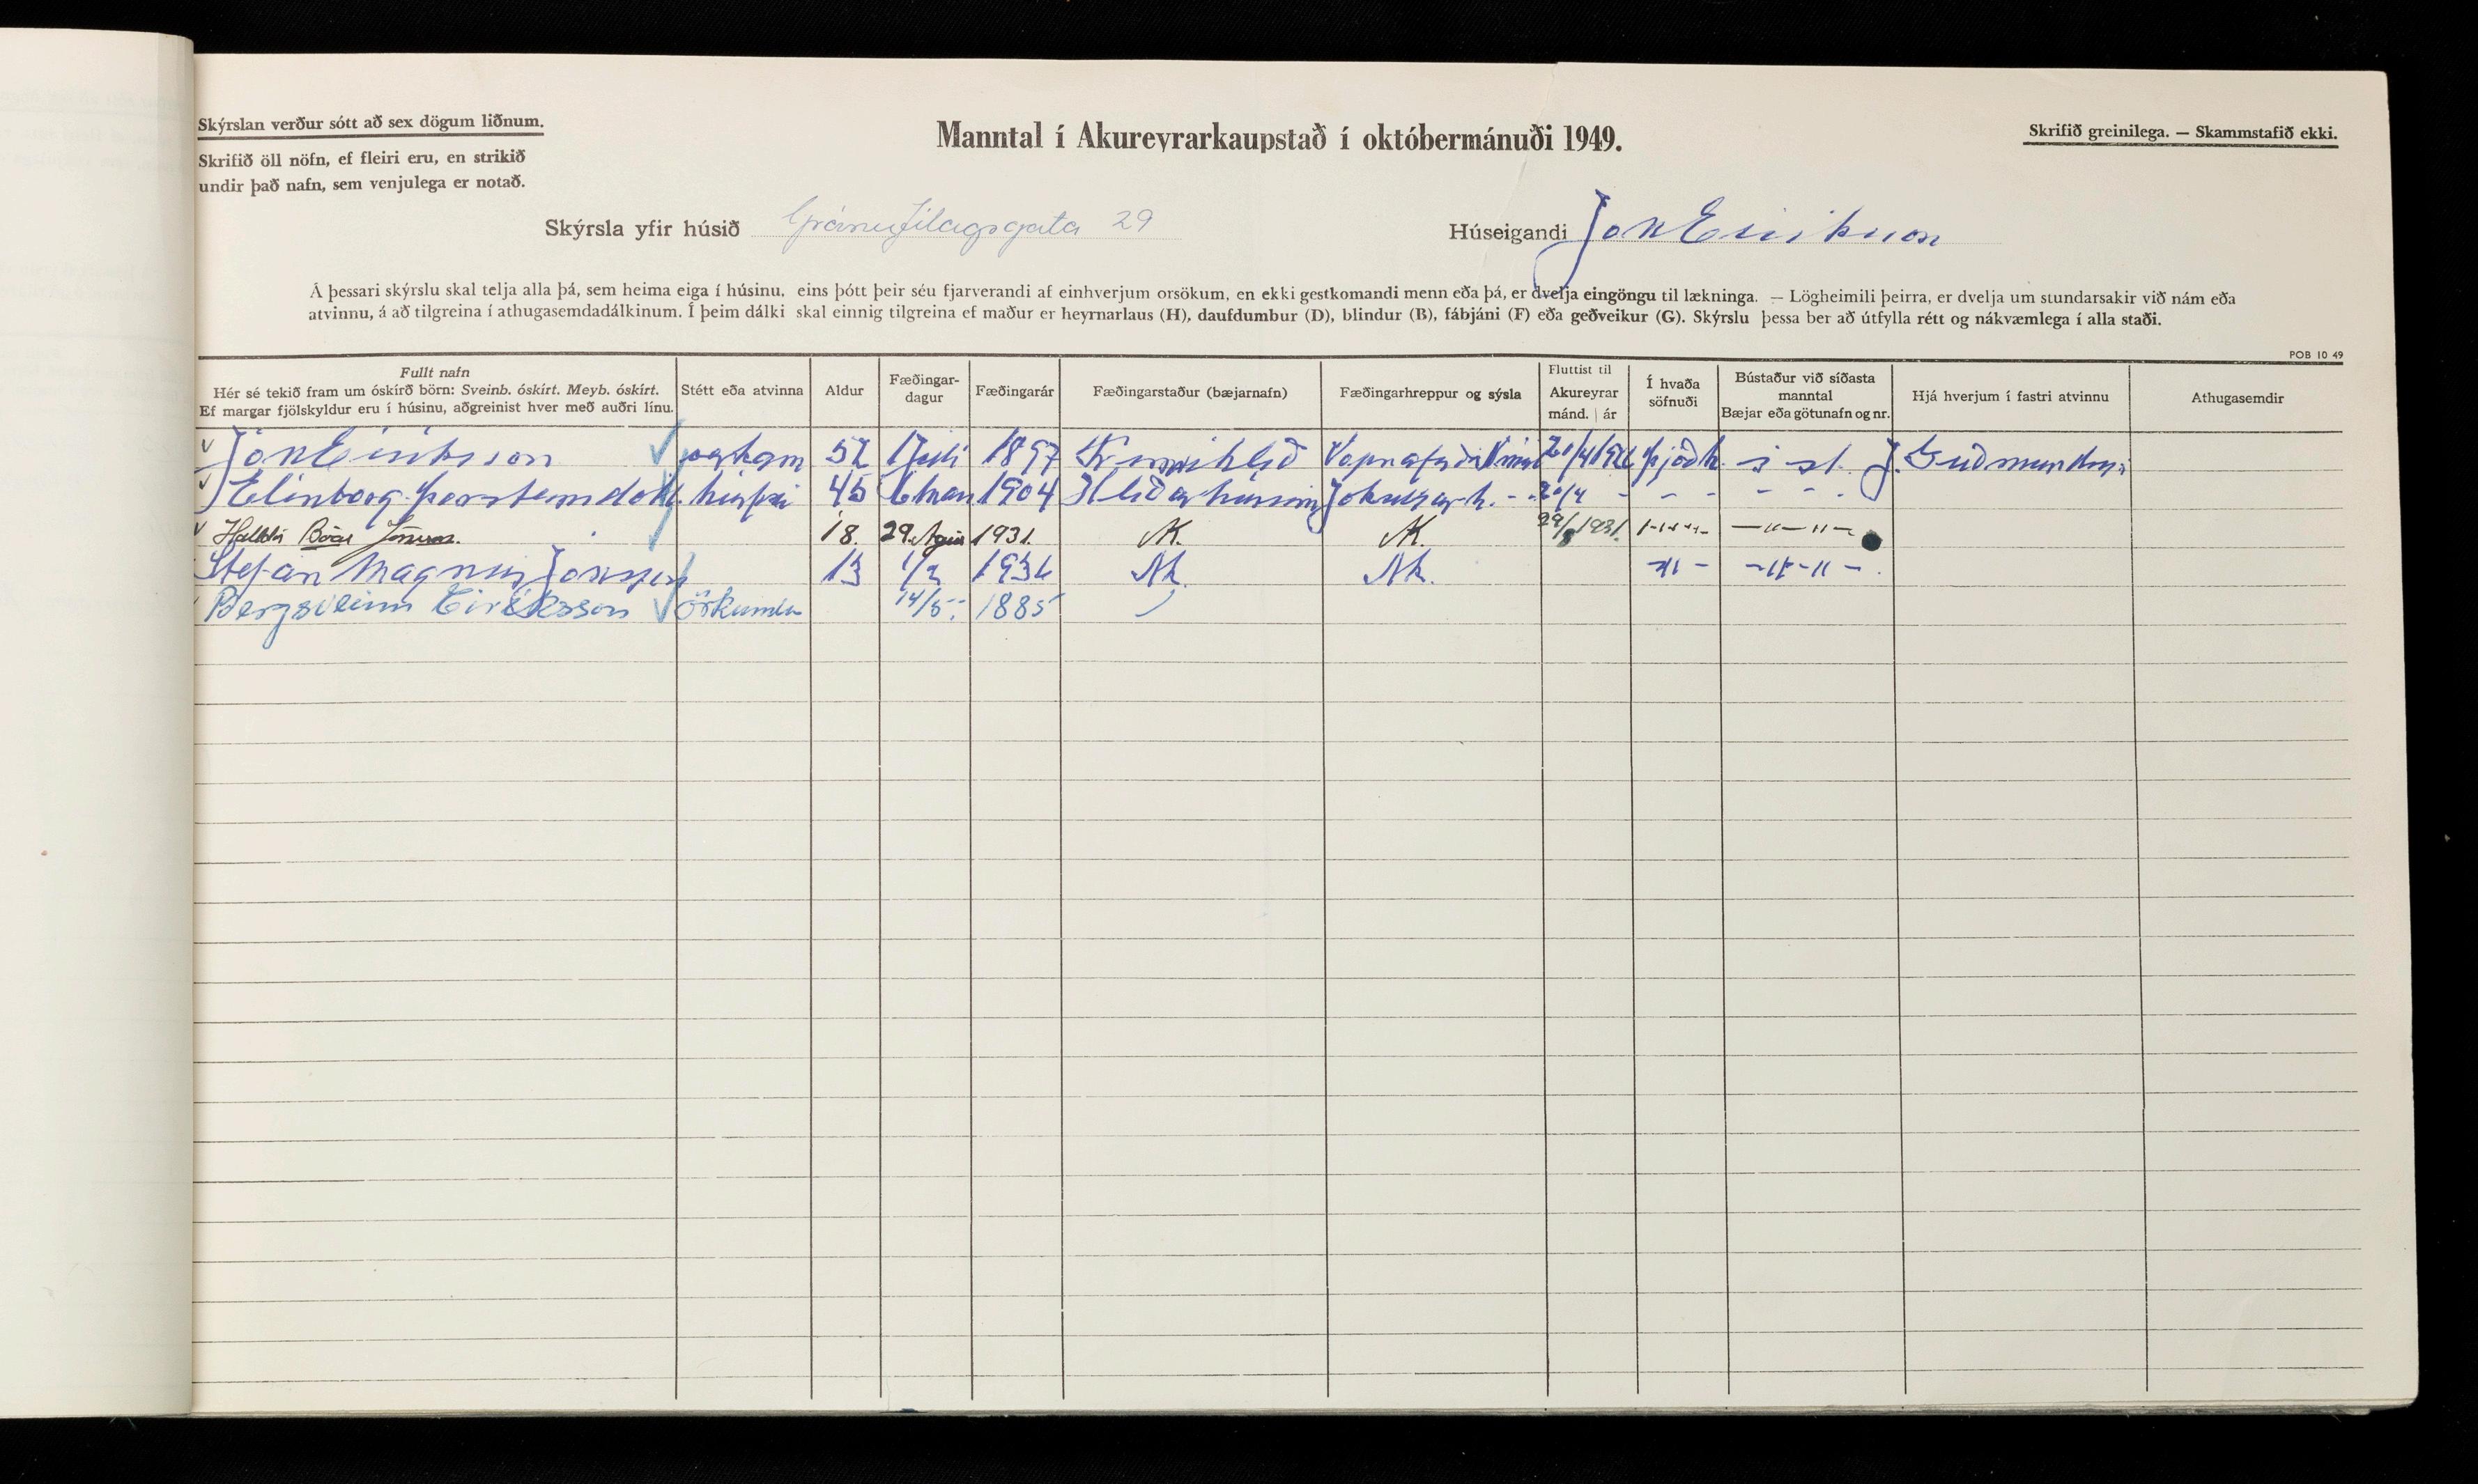 Skýrslan verður sótt að sex dögum liðnum.
Skrifið öll nöfn, ef fleiri eru, en strikið
undir það nafn, sem venjulega er notað.
Manntal í Akureyrarkaupstað í októbermánuði 1949.
Skrifið greinilega. — Skammstafið ekki.
Skýrsla yfir húsið Gránufélagsgata 29
Húseigandi Jón Eiriksson
Á þessari skýrslu skal telja alla þá, sem heima eiga í húsinu, eins þótt þeir séu fjarverandi af einhverjum orsökum, en ekki gestkomandi menn eða þá, er dvelja eingöngu til lækninga. — Lögheimili þeirra, er dvelja um stundarsakir við nám eða
atvinnu, á að tilgreina í athugasemdadálkinum. Í þeim dálki skal einnig tilgreina ef maður er heyrnarlaus (H), daufdumbur (D), blindur (B), fábjáni (F) eða geðveikur (G). Skýrslu þessa ber að útfylla rétt og nákvæmlega í alla staði.
POB 10 49
Fullt nafn
Hér sé tekið fram um óskírð börn: Sveinb. óskírt. Meyb. óskírt.
Ef margar fjölskyldur eru í húsinu, aðgreinist hver með auðri línu.
Stétt eða atvinna
Aldur
Fæðingar-
dagur
Fæðingarár
Fæðingarstaður (bæjarnafn)
Fæðingarhreppur og sýsla
Fluttist til
Akureyrar
mánd. | ár
Í hvaða
söfnuði
Bústaður við síðasta
manntal
Bæjar eða götunafn og nr.
Hjá hverjum í fastri atvinnu
Athugasemdir
Jón Eiriksson 52 1 Juli 1897 þjóðk. s st. J. Guðmundss
Elinborg Þorsteinsdott 45 6 mars 1904 Hliðarhúsum Jökulsárh. - - 20/4 - - - - - -
Halldór Bóas Jónsson. 18. 29. Ágús 1931. AK. AK. 29/8 1931. — „ — „ —
Stefan Magnus Jonsson 13 1/2 1936 Ak. Ak. - „ - - „ - „ -
Bergsveinn Eiríksson örkumla 14/5 1885